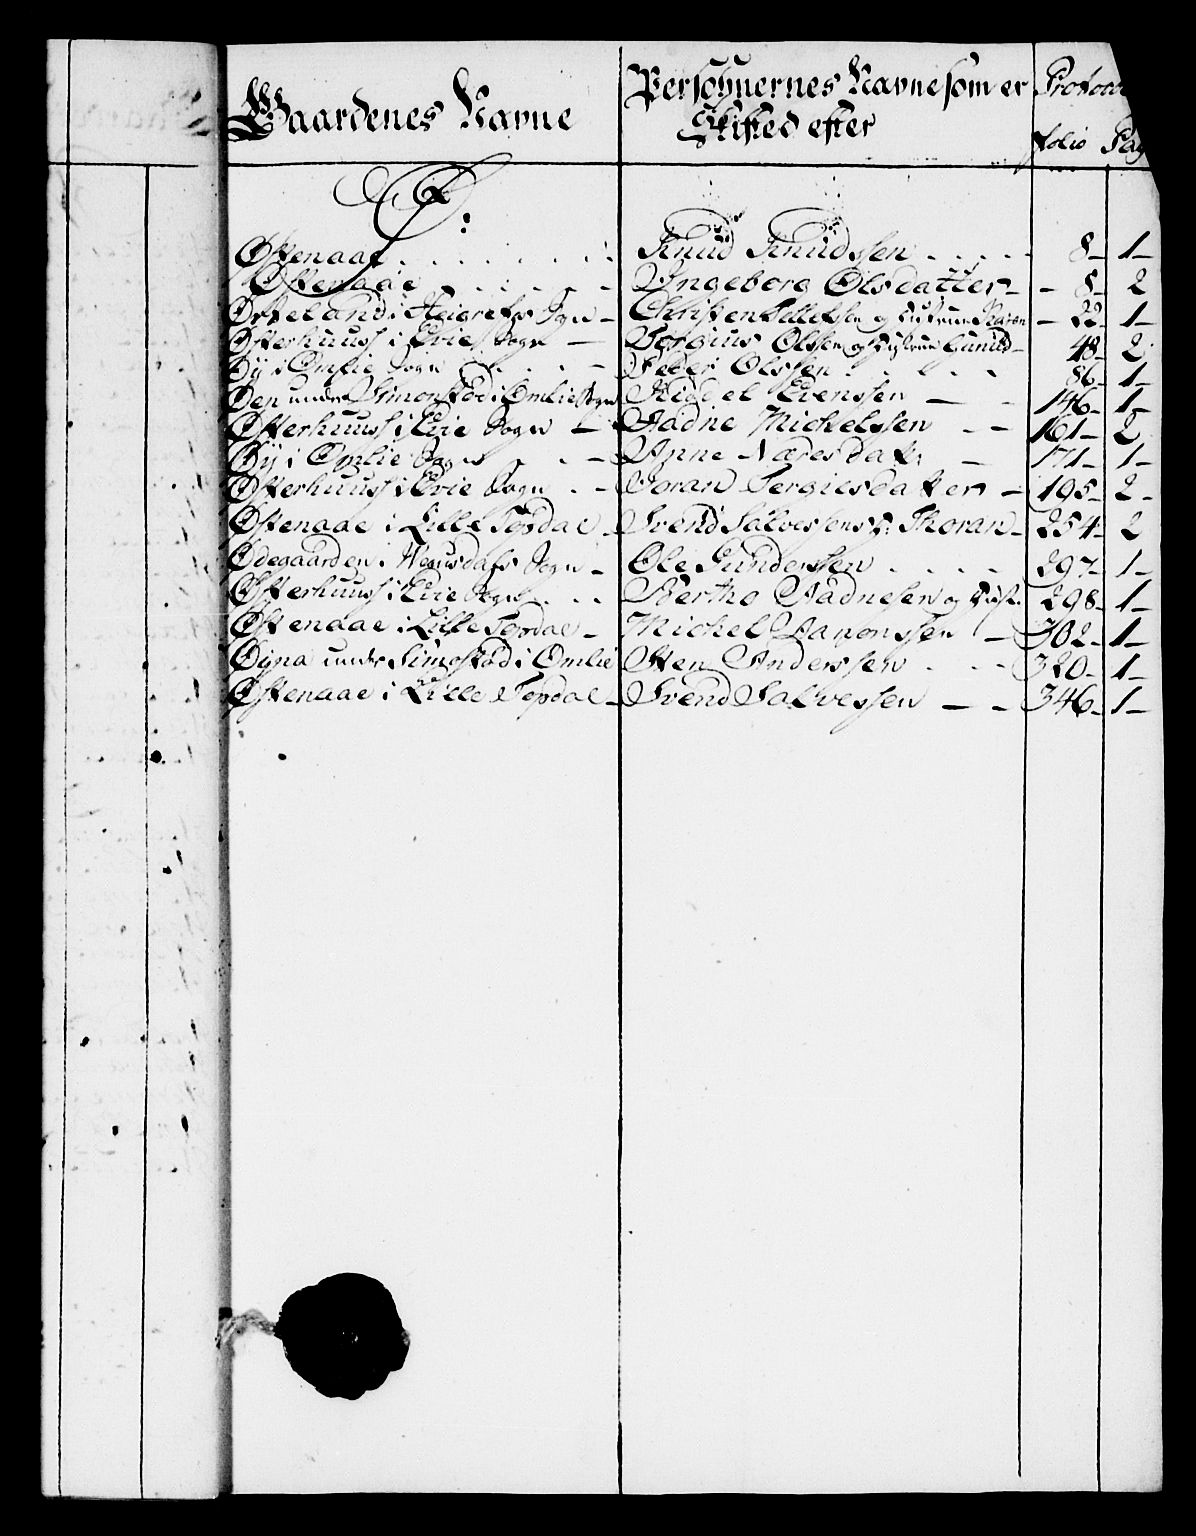 Gaardenes Navne Persohnernes Navne som er Skifted efter Protocol
folio Pag
Ø:
Østenaae . . . . . Knud Knudssen . . . . . 8 – 1 –
Østenaae . . . . . Yngeborg Olsdatter – 8 – 2
Østeland i Heigrefos Sogn – Christen Tellefsen og hustrue Karen – 22 – 1 –
Østerhuus i Evie Sogn – Torgius Olssen og hustrue Gunild – 48 – 2
Øy i Omlie Sogn . . . Peder Olssen . . . 86 – 1 –
Øen under Simonstød i Omlie Sogn Kiddel Evenssen – – 146 – 1 –
Østerhuus i Evie Sogn – Aadne Michelssen – – 161 – 2
Øy i Omlie Sogn . . . Anne Næresdatr – 171 – 1 –
Østerhuus i Evie Sogn . – Joran Tergiesdatter – 195 – 2 –
Østenaae i Lille Topdal – Svend Salvessens H: Thoran – 254 – 2
Ødegaarden i Wegusdals Sogn – Ole Gunderssen . . . . 297 – 1 –
Østerhuus i Evie Sogn . . . Berthe Aadnesen og 298 – 1 –
Østenaae i Lille Topdal – Michel Aanonssen – 302 – 1 –
Øyna under Simostød i Omlie Sten Anderssen . . . 320 – 1 –
Østenaae i Lille Topdal – Svend Salvessen – – 346 – 1 –